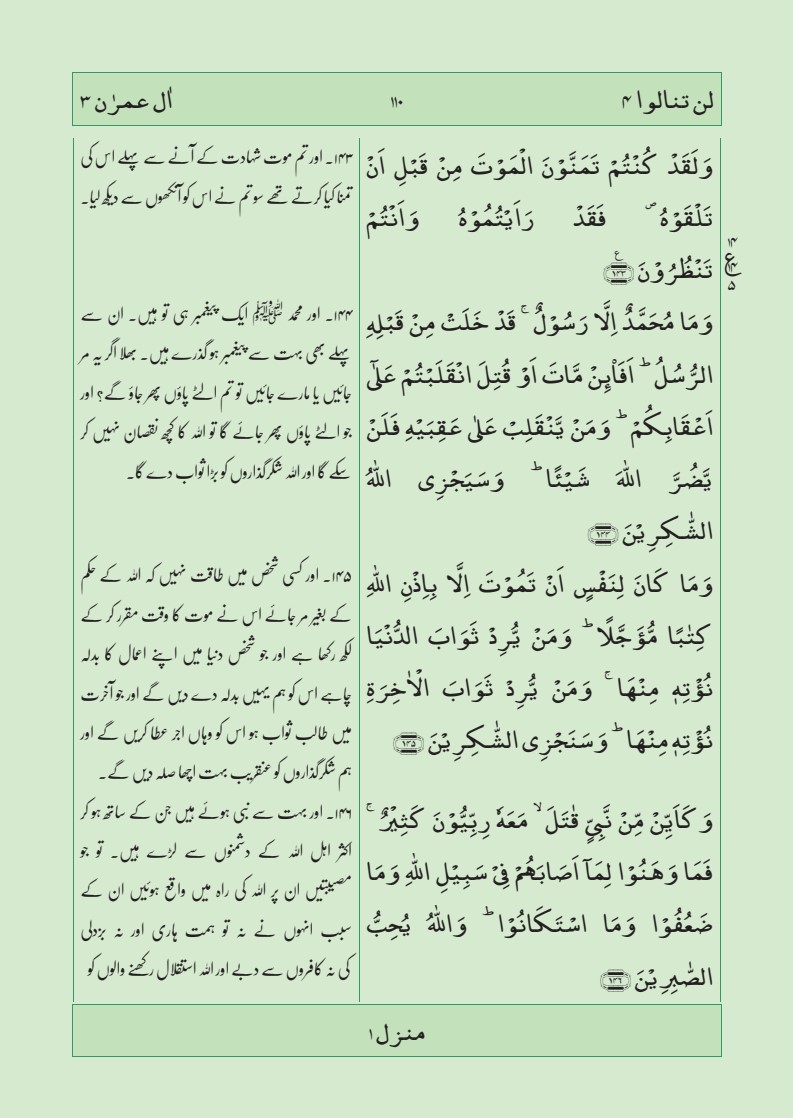 لن تنالوا ۴
۱۱۰
اٰل عمرٰن ۳
وَلَقَدْ كُنْتُمْ تَمَنَّوْنَ الْمَوْتَ مِنْ قَبْلِ اَنْ
تَلْقَوْهُ ۪ فَقَدْ رَاَيْتُمُوْهُ وَاَنْتُمْ
تَنْظُرُوْنَ ﴿۱۴۳﴾ ع
۱۴
ع
۵
وَمَا مُحَمَّدٌ اِلَّا رَسُوْلٌ ۚ قَدْ خَلَتْ مِنْ قَبْلِهِ
الرُّسُلُ ؕ اَفَاۡئِنْ مَّاتَ اَوْ قُتِلَ انْقَلَبْتُمْ عَلٰٓى
اَعْقَابِكُمْ ؕ وَمَنْ يَّنْقَلِبْ عَلٰى عَقِبَيْهِ فَلَنْ
يَّضُرَّ اللّٰهَ شَيْئًا ؕ وَسَيَجْزِى اللّٰهُ
الشّٰكِرِيْنَ ﴿۱۴۴﴾
وَمَا كَانَ لِنَفْسٍ اَنْ تَمُوْتَ اِلَّا بِاِذْنِ اللّٰهِ
كِتٰبًا مُّؤَجَّلًا ؕ وَمَنْ يُّرِدْ ثَوَابَ الدُّنْيَا
نُؤْتِهٖ مِنْهَا ۚ وَمَنْ يُّرِدْ ثَوَابَ الْاٰخِرَةِ
نُؤْتِهٖ مِنْهَا ؕ وَسَنَجْزِى الشّٰكِرِيْنَ ﴿۱۴۵﴾
وَ كَاَيِّنْ مِّنْ نَّبِىٍّ قٰتَلَ ۙ مَعَهٗ رِبِّيُّوْنَ كَثِيْرٌ ۚ
فَمَا وَهَنُوْا لِمَاۤ اَصَابَهُمْ فِىْ سَبِيْلِ اللّٰهِ وَمَا
ضَعُفُوْا وَمَا اسْتَكَانُوْا ؕ وَاللّٰهُ يُحِبُّ
الصّٰبِرِيْنَ ﴿۱۴۶﴾
۱۴۳۔ اور تم موت شہادت کے آنے سے پہلے اس کی
تمنا کیا کرتے تھے سو تم نے اس کو آنکھوں سے دیکھ لیا۔
۱۴۴۔ اور محمد ﷺ ایک پیغمبر ہی تو ہیں۔ ان سے
پہلے بھی بہت سے پیغمبر ہو گذرے ہیں۔ بھلا اگر یہ مر
جائیں یا مارے جائیں تو تم الٹے پاؤں پھر جاؤ گے؟ اور
جو الٹے پاؤں پھر جائے گا تو اللہ کا کچھ نقصان نہیں کر
سکے گا اور اللہ شکرگذاروں کو بڑا ثواب دے گا۔
۱۴۵۔ اور کسی شخص میں طاقت نہیں کہ اللہ کے حکم
کے بغیر مر جائے اس نے موت کا وقت مقرر کر کے
لکھ رکھا ہے اور جو شخص دنیا میں اپنے اعمال کا بدلہ
چاہے اس کو ہم یہیں بدلہ دے دیں گے اور جو آخرت
میں طالب ثواب ہو اس کو وہاں اجر عطا کریں گے اور
ہم شکرگذاروں کو عنقریب بہت اچھا صلہ دیں گے۔
۱۴۶۔ اور بہت سے نبی ہوئے ہیں جن کے ساتھ ہو کر
اکثر اہل اللہ کے دشمنوں سے لڑے ہیں۔ تو جو
مصیبتیں ان پر اللہ کی راہ میں واقع ہوئیں ان کے
سبب انہوں نے نہ تو ہمت ہاری اور نہ بزدلی
کی نہ کافروں سے دبے اور اللہ استقلال رکھنے والوں کو
منزل ۱